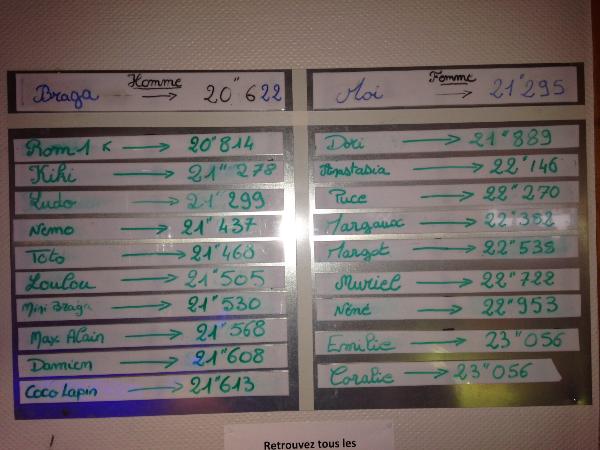 Homme
Braga → 20"622
Rom1 < → 20"814
Kihi → 21"278
Ludo → 21"299
Nemo → 21"437
Toto → 21"460
Loulou → 21"505
Mini Braga → 21"530
Max Alain → 21"568
Damien → 21"608
Coco Lapin → 21"613
Femme
Moi → 21"295
Dori → 21"889
Anastasia → 22"146
Puce → 22"270
Margaux → 22"382
Margot → 22"538
Muriel → 22"722
Néné → 22"953
Emilie → 23"056
Coralie → 23"056
Retrouvez tous les